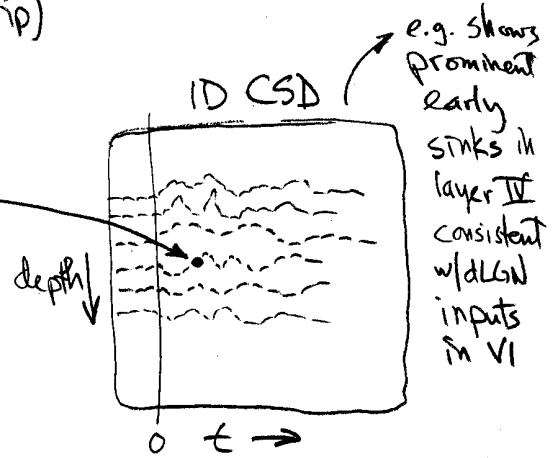 ip)
1D CSD
e.g. shows
prominent
early
sinks in
layer IV
consistent
w/dLGN
inputs
in V1
depth
0 t